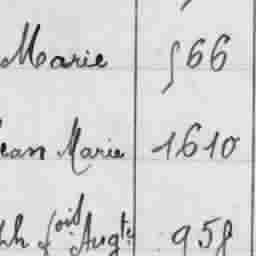 Marie 566
ean Marie 1610
ph fois Augte 958